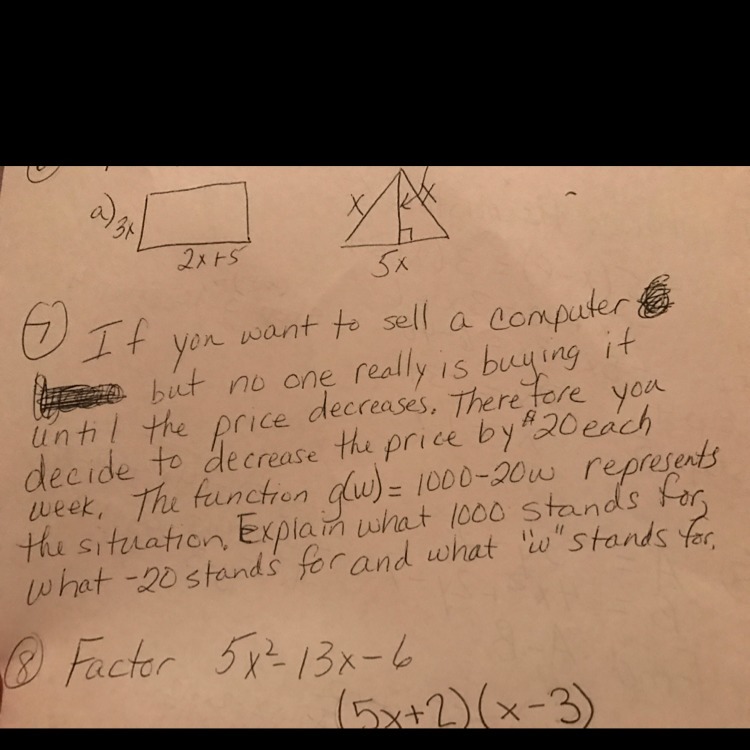 a)
3x
2x+5
x
x
5x
7 If you want to sell a computer
but no one really is buying it
until the price decreases. Therefore you
decide to decrease the price by $20 each
week. The function g(w) = 1000-20w represents
the situation. Explain what 1000 stands for,
what -20 stands for and what "w" stands for.
8 Factor 5x²-13x-6
(5x+2)(x-3)